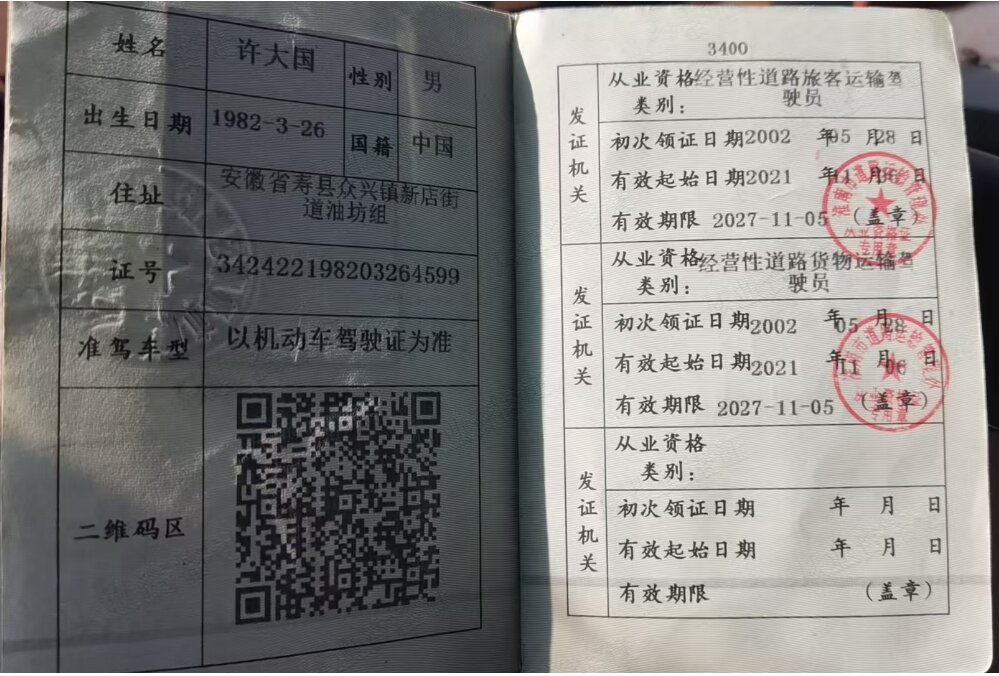 姓名 许大国 性别 男
出生日期 1982-3-26 国籍 中国
住址 安徽省寿县众兴镇新店街
道油坊组
证号 342422198203264599
准驾车型 以机动车驾驶证为准
二维码区
3400
发证机关
从业资格经营性道路旅客运输驾
类别: 驶员
初次领证日期2002 年05 月28 日
有效起始日期2021 年11 月06 日
有效期限 2027-11-05 (盖章)
发证机关
从业资格经营性道路货物运输驾
类别: 驶员
初次领证日期2002 年05 月28 日
有效起始日期2021 年11 月06 日
有效期限 2027-11-05 (盖章)
发证机关
从业资格
类别:
初次领证日期 年 月 日
有效起始日期 年 月 日
有效期限 (盖章)
专用章
专用章